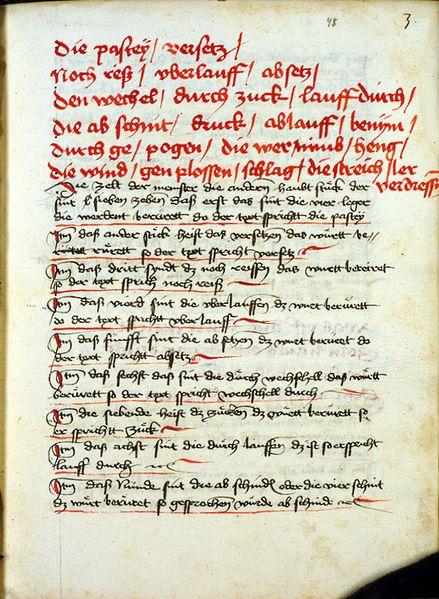 48 3
die pastey / versetz /
Noch reß / vberlauff / absetz /
den wechel / durch zuck / lauff durch /
die ab schnit / druck / ablauff / benÿm /
durch ge / pogen / die wer / heng /
die wind / gen plossen / schlag / die streich / ler
verdress
die zelt der monster die andern haubt stuck der
sint sieben zehen daß erst das sint die vier leger
die werdent beruret do der text spricht die pastey
Jtm daß ander stück heist daß versetzen das württ be
rürett so der text spricht versetz
Jtm daß dritt syndt dz noch reissen das wurtt beruret
so der text sprich noch reiß
Jtm daß vierd sint die vberlauffen dz wurt berürett
do der text sprichtt vberlauff
Jtm daß funfft sint die ab setzen dz wurt beruret do
der text sprichtt absetz
Jtm daß sechst daß sint die durch wechsßell das württ
berürett so der text spricht wechsßell durch
Jtm die siebende heist dz zucken dz wurtt beruett so
er sprichtt zuck
Jtm daß achst sint die durch lauffen dz ist so er spricht
lauff durch
Jtm daß Nünde sint die ab schindl oder die vier schnit
dz würt berüret so gesprochen würde ab schinde